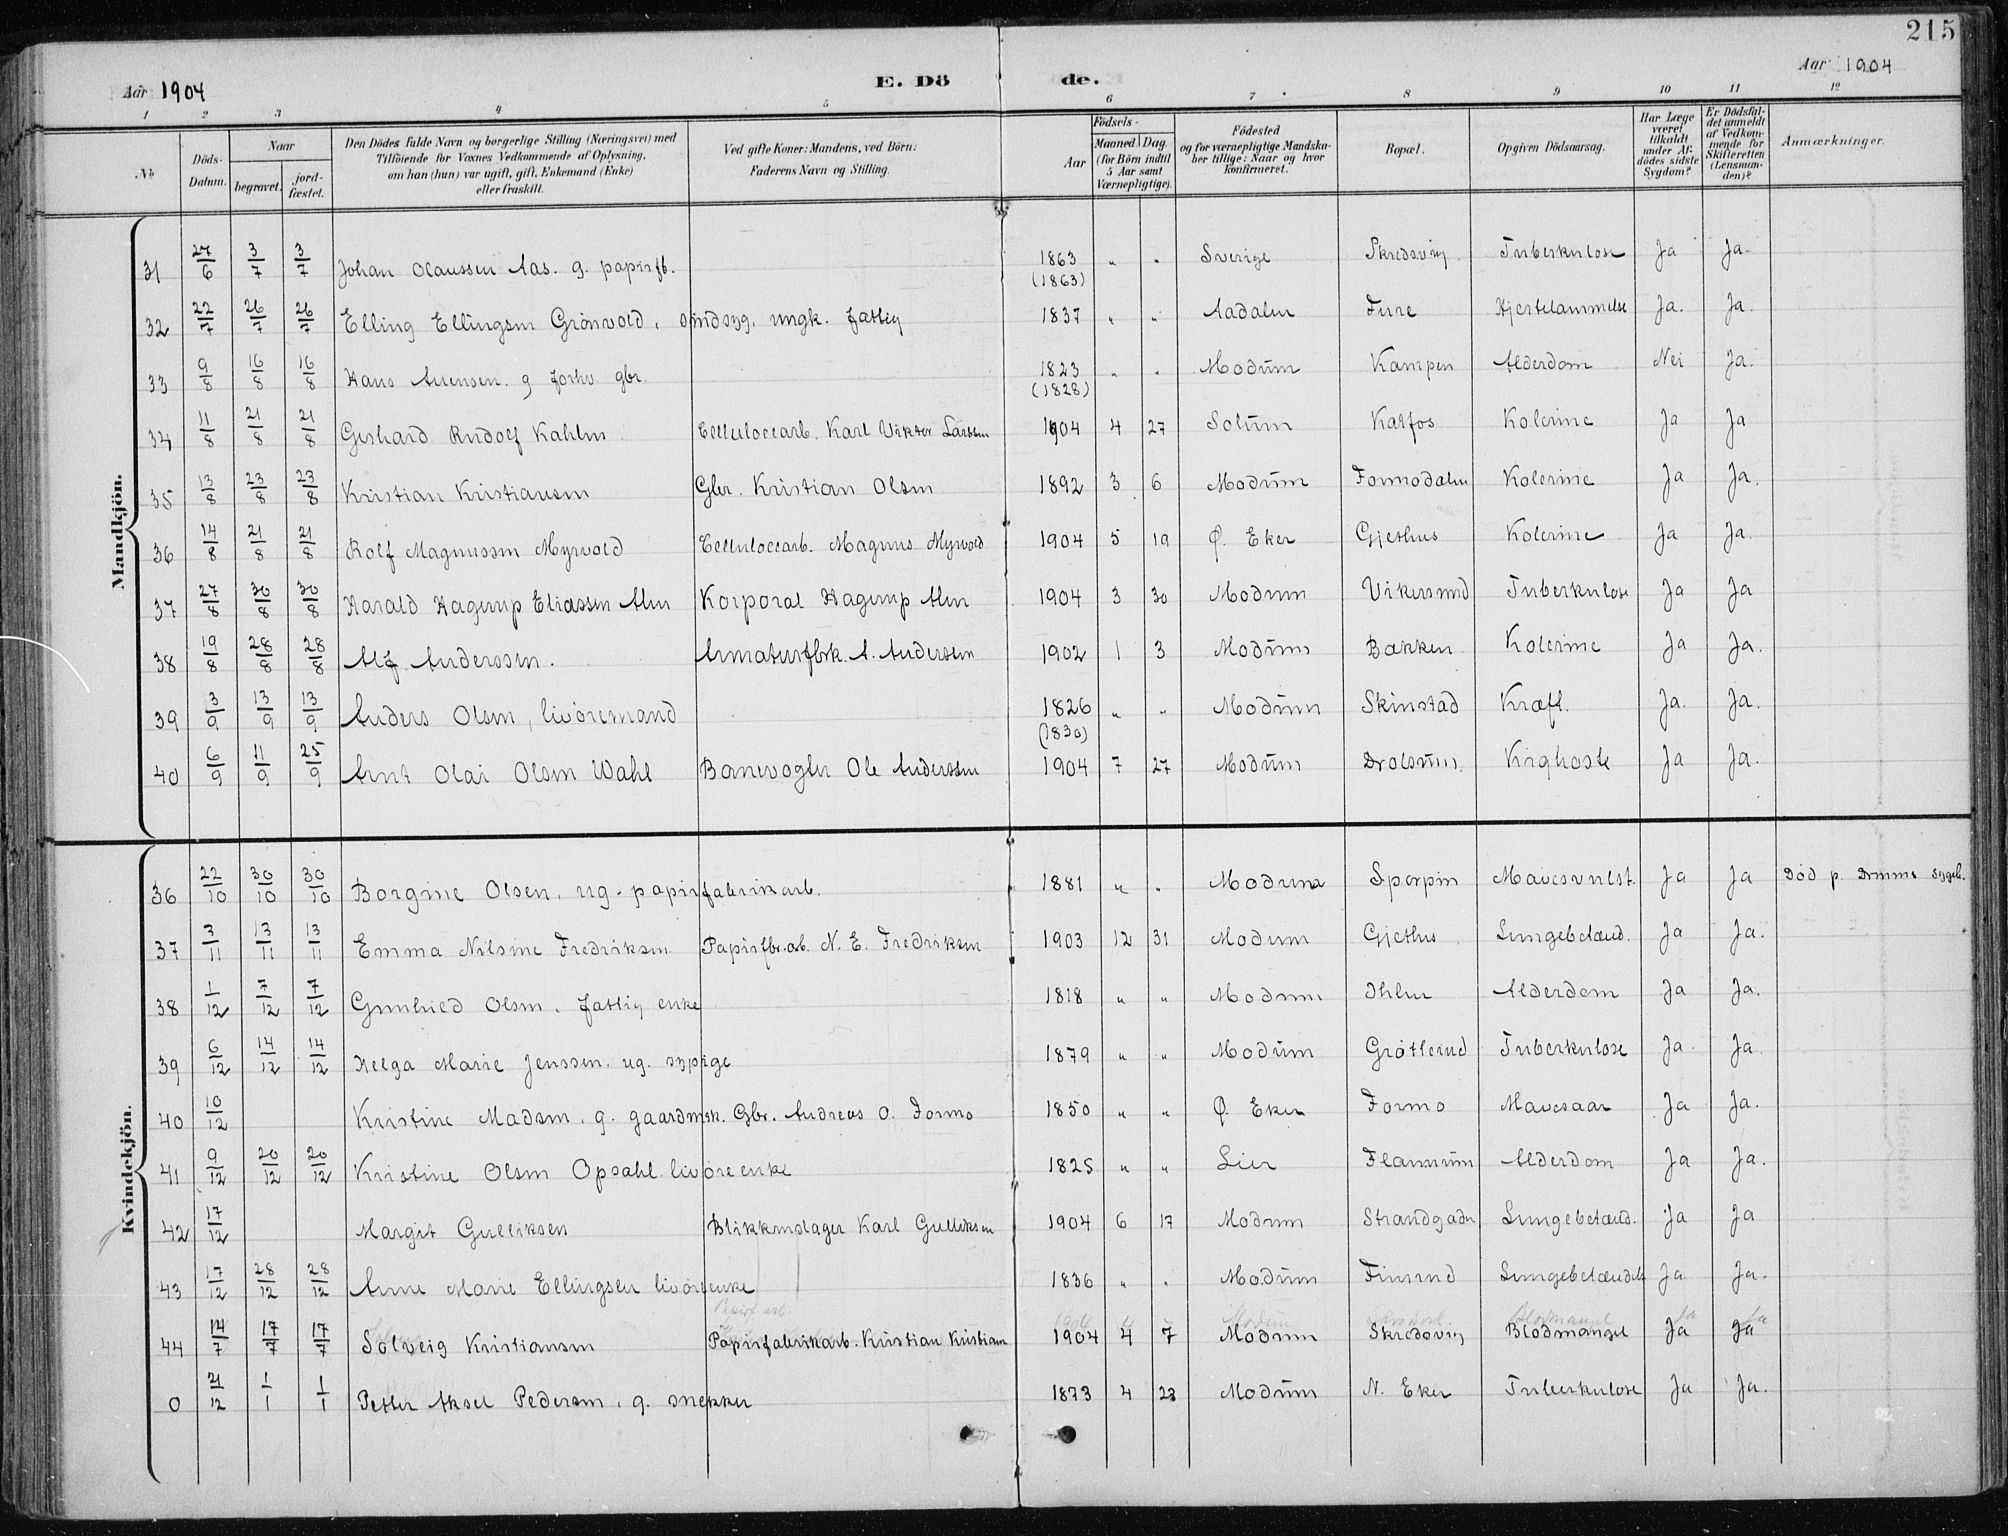 215
Aar 1904
E. Döde.
Aar 1904
1 2 3 4 5 6 7 8 9 10 11 12
No
Döds-Datum.
Naar
begravet.
jord-fæstet.
Den Dödes fulde Navn og borgerlige Stilling (Næringsvei) med
Tilföiende for Voxnes Vedkommende af Oplysning,
om han (hun) var ugift, gift, Enkemand (Enke)
eller fraskilt.
Ved gifte Koner: Mandens, ved Börn:
Faderens Navn og Stilling.
Födsels-
Aar
Maaned. Dag.
(for Börn indtil 5 Aar samt Værnepligtige).
Födested
og for værnepligtige Mandskaber tillige: Naar og hvor konfirmeret.
Bopæl.
Opgiven Dödsaarsag.
Har Læge været tilkaldt under Afdödes sidste Sygdom?
Er Dödsfaldet anmeldt af Vedkommende for Skifteretten (Lensmanden)?
Anmærkninger.
Mandkjön.
31 27/6 3/7 3/7 Johan Olaussen Aas. g. papirfb. 1863 (1863) " " Sverige Skredsvig Tuberkulose Ja Ja.
32 22/7 26/7 26/7 Elling Ellingsen Grönvold, sindssyg, ungk. fattig 1837 " " Aadalen Fure Hjertelammelse Ja. Ja.
33 9/8 16/8 16/8 Hans Svensen. g forhv. gbr. 1823 (1828) " " Modum Kampen Alderdom Nei Ja.
34 11/8 21/8 21/8 Gerhard Rudolf Kahlm Cellulosearb. Karl Viktor Larssen 1904 4 27 Solum Katfos Kolerine Ja Ja
35 13/8 23/8 23/8 Kristian Kristiansen Gbr. Kristian Olsen 1892 3 6 Modum Formodalen Kolerine Ja Ja.
36 14/8 21/8 21/8 Rolf Magnussen Myrvold Cellulosearb. Magnus Myrvold 1904 5 19 Ø. Eker Gjethus Kolerine Ja Ja.
37 27/8 30/8 30/8 Harald Hagerup Eliassen Alm Korporal Hagerup Alm 1904 3 30 Modum Vikersund Tuberkulose Ja Ja
38 19/8 28/8 28/8 Alf Anderssen. Armaturfbrk. A. Anderssen 1902 1 3 Modum Bakken Kolerine Ja Ja.
39 3/9 13/9 13/9 Anders Olsen, livöremand 1826 (1830) " " Modum Skinstad Kræft. Ja. Ja.
40 6/9 11/9 25/9 Arnt Olai Olsen Wahl Banevogter Ole Anderssen 1904 7 27 Modum Drolsum. Kighoste Ja Ja.
Kvindekjön.
36 22/10 30/10 30/10 Borgine Olsen, ug. papirfabrikarb. 1881 " " Modum Sperpin Mavesvulst. Ja Ja Död p. Drmms sygeh.
37 3/11 13/11 13/11 Emma Nilsine Fredriksen Papirfbr.arb. N. E. Fredriksen 1903 12 31 Modum Gjethus Lungebetænd. Ja Ja.
38 1/12 7/12 7/12 Gunhild Olsen, fattig enke 1818 " " Modum Ihlen Alderdom Ja Ja.
39 6/12 14/12 14/12 Helga Marie Jenssen. ug. sypige 1879 " " Modum Grötterud Tuberkulose Ja Ja.
40 10/12 Kristine Madsen, g. gaardmsk. Gbr. Andreas O. Formo 1850 " " Ø. Eker Formo Mavesaar Ja Ja.
41 9/12 20/12 20/12 Kristine Olsen Opsahl livöreenke 1825 " " Lier Flannum Alderdom Ja Ja.
42 17/12 Margit Gulliksen Blikkenslager Karl Gulliksen 1904 6 17 Modum Strandgaden Lungebetænd. Ja Ja
43 17/12 28/12 28/12 Anne Marie Ellingsen livöreenke 1836 " " Modum Finsrud Lungebetændelse Ja Ja.
44 14/7 17/7 17/7 Solveig Kristiansen Papirfabrikarb. Kristian Kristiansen 1904 4 7 Modum Skredsvig Blodmangel Ja Ja
0 21/12 1/1 1/1 Petter Aksel Pedersen, g. snekker 1873 4 23 Modum N. Eker Tuberkulose Ja Ja.